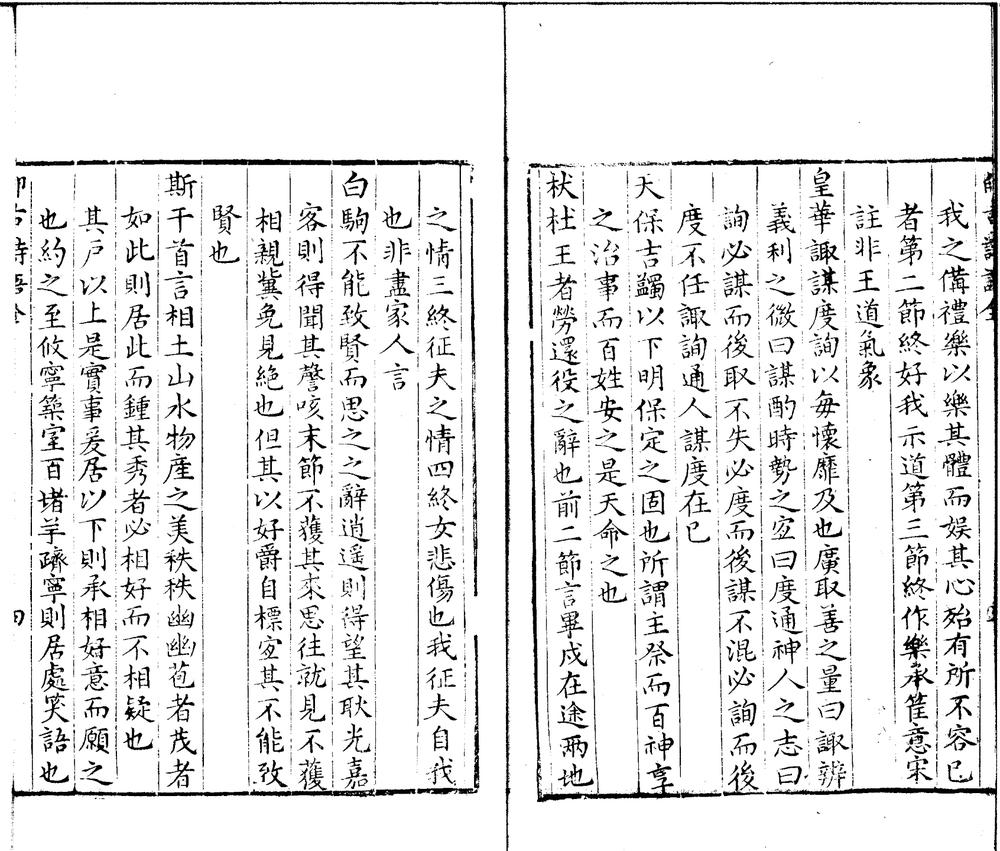 我之備禮樂以樂其體而娛其心殆有所不容已
者第二節終好我示道第三節終作樂承筐意宋
註非王道氣象
皇華諏謀度詢以每懷靡及也廣取善之量曰諏辨
義利之微曰謀酌時勢之宜曰度通神人之志曰
詢必謀而後取不失必度而後謀不混必詢而後
度不任諏詢通人謀度在已
天保吉蠲以下明保定之固也所謂王祭而百神享
之治事而百姓安之是天命之也
杕杜王者勞還役之辭也前二節言畢戍在途兩地
之情三終征夫之情四終女悲傷也我征夫自我
也非盡家人言
白駒不能致賢而思之之辭逍遥則得望其耿光嘉
客則得聞其謦咳末節不獲其来思往就見不獲
相親冀免見絶也但其以好爵自標宜其不能致
賢也
斯干首言相土山水物産之美秩秩幽幽苞者茂者
如此則居此而鍾其秀者必相好而不相疑也
其戸以上是實事爰居以下則承相好意而願之
也約之至攸寧築室百堵芋躋寧則居處笑語也
四